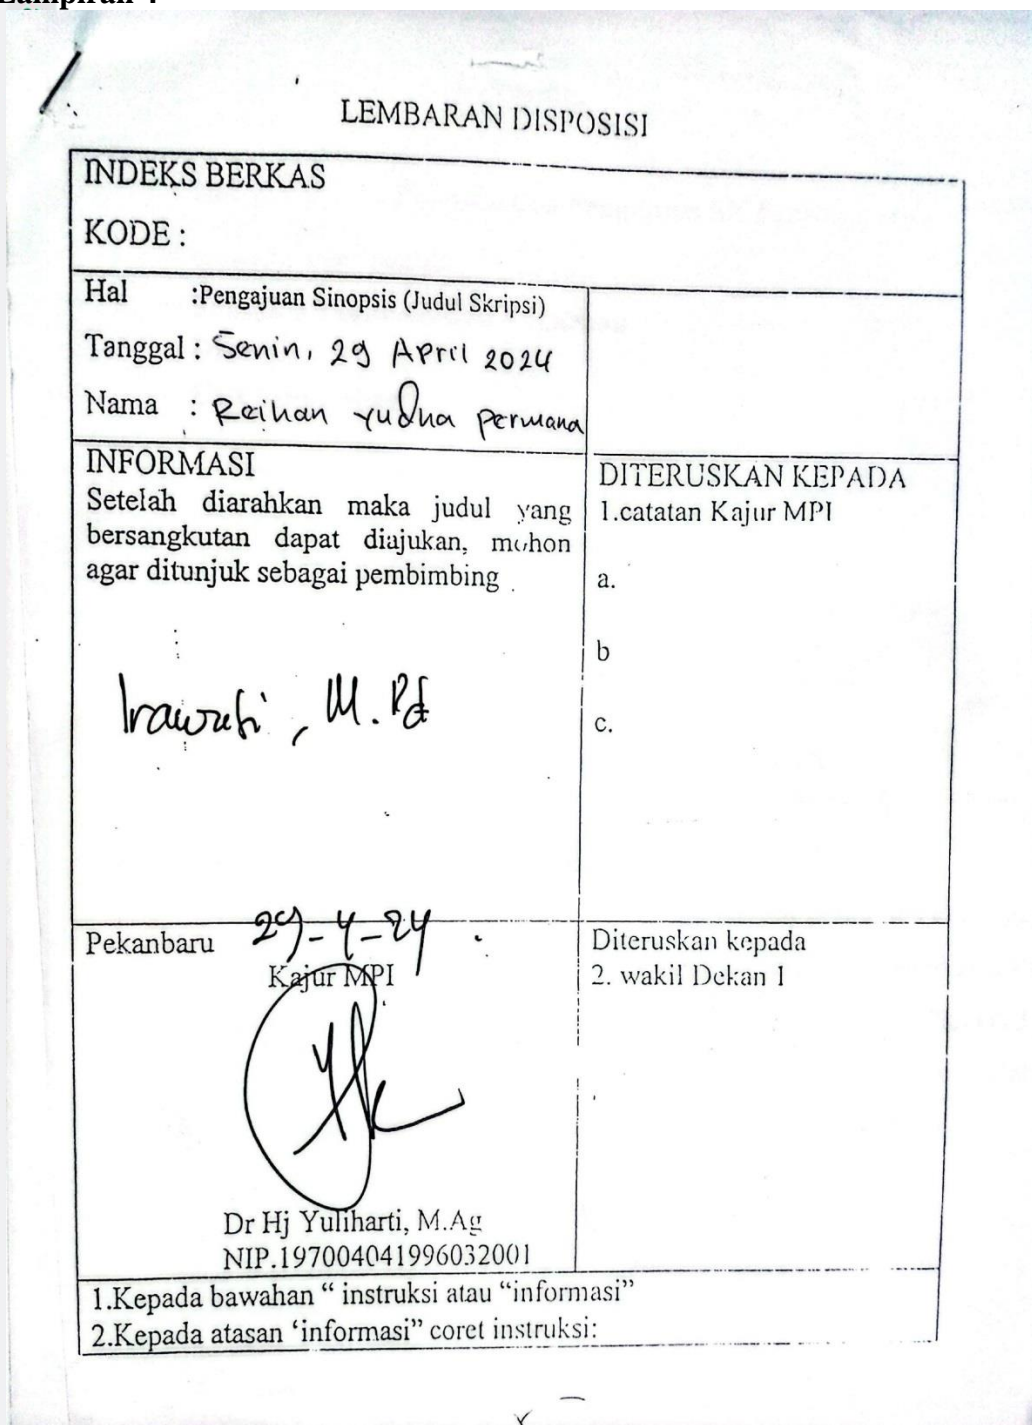 Lampiran 4
LEMBARAN DISPOSISI
INDEKS BERKAS
KODE :
Hal :Pengajuan Sinopsis (Judul Skripsi)
Tanggal : Senin, 29 April 2024
Nama : Reihan yudha permana
INFORMASI
Setelah diarahkan maka judul yang
bersangkutan dapat diajukan, mohon
agar ditunjuk sebagai pembimbing
Irawati, M.Pd
DITERUSKAN KEPADA
1.catatan Kajur MPI
a.
b
c.
Pekanbaru 29-4-24
Kajur MPI
Dr Hj Yuliharti, M.Ag
NIP.197004041996032001
Diteruskan kepada
2. wakil Dekan 1
1.Kepada bawahan “ instruksi atau “informasi”
2.Kepada atasan ‘informasi” coret instruksi: